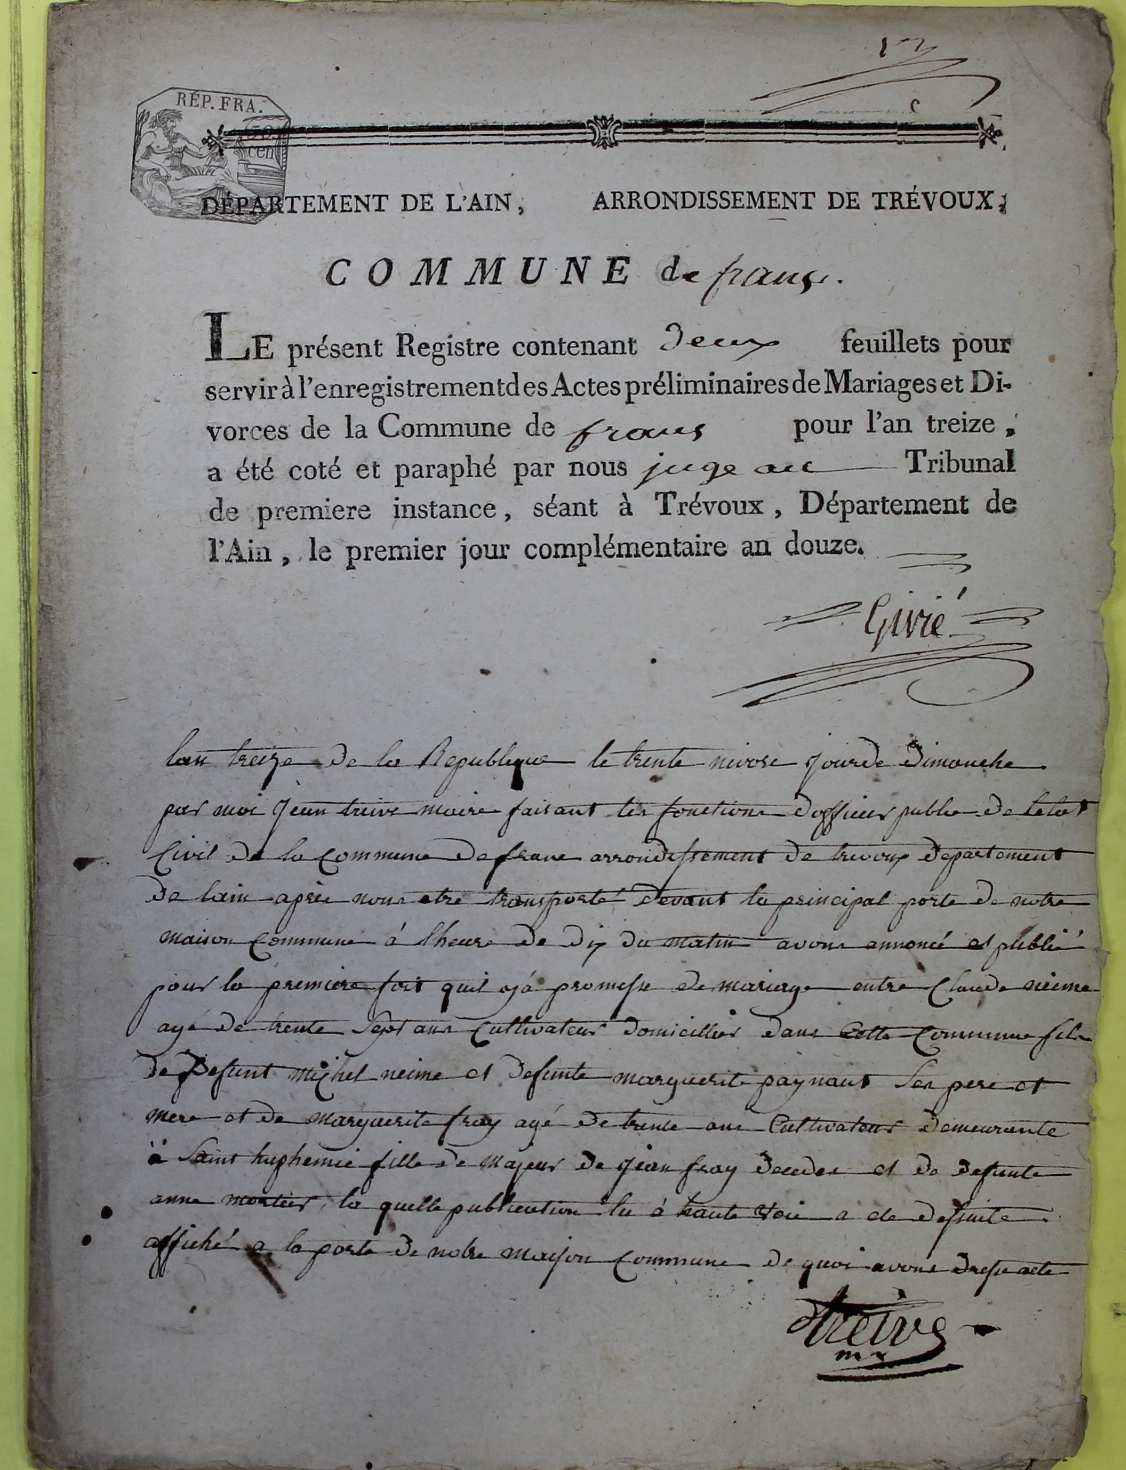 RÉP. FRA.
cen
DÉPARTEMENT DE L'AIN, ARRONDISSEMENT DE TRÉVOUX,
COMMUNE de frans.
LE présent Registre contenant deux feuillets pour
servir à l'enregistrement des Actes préliminaires de Mariages et Di-
vorces de la Commune de frans pour l'an treize,
a été coté et paraphé par nous juge au Tribunal
de premiere instance, séant à Trévoux, Département de
l'Ain, le premier jour complémentaire an douze.
Givié
lan treize de la Republique le trente nivose jour de Dimanche
par moi jean treive maire faisant les fonctions dofficier public de letat
Civil de la Commune de frans arrondissement de trevoux departement
de lain après nous etre transporté devant la principal porte de notre
maison commune á lheure de dix du matin avons annoncé et publié
pour la première fois quil yá promesse de mariage entre Claude neime
agé de trente Sept ans Cultivateur domicillier dans Cette Commune fils
de Defunt michel neime et defunte marguerite paynant Ses pere et
mere et de marguerite fray agé de trente ans Cultivateur demeurante
à Saint huphemie fille de majeur de jean fray decedee et de defunte
anne mortier, la quelle publication lu á haute Voie a ete desuite
affiché a la porte de notre maison commune de quoi avons dresse acte
treive